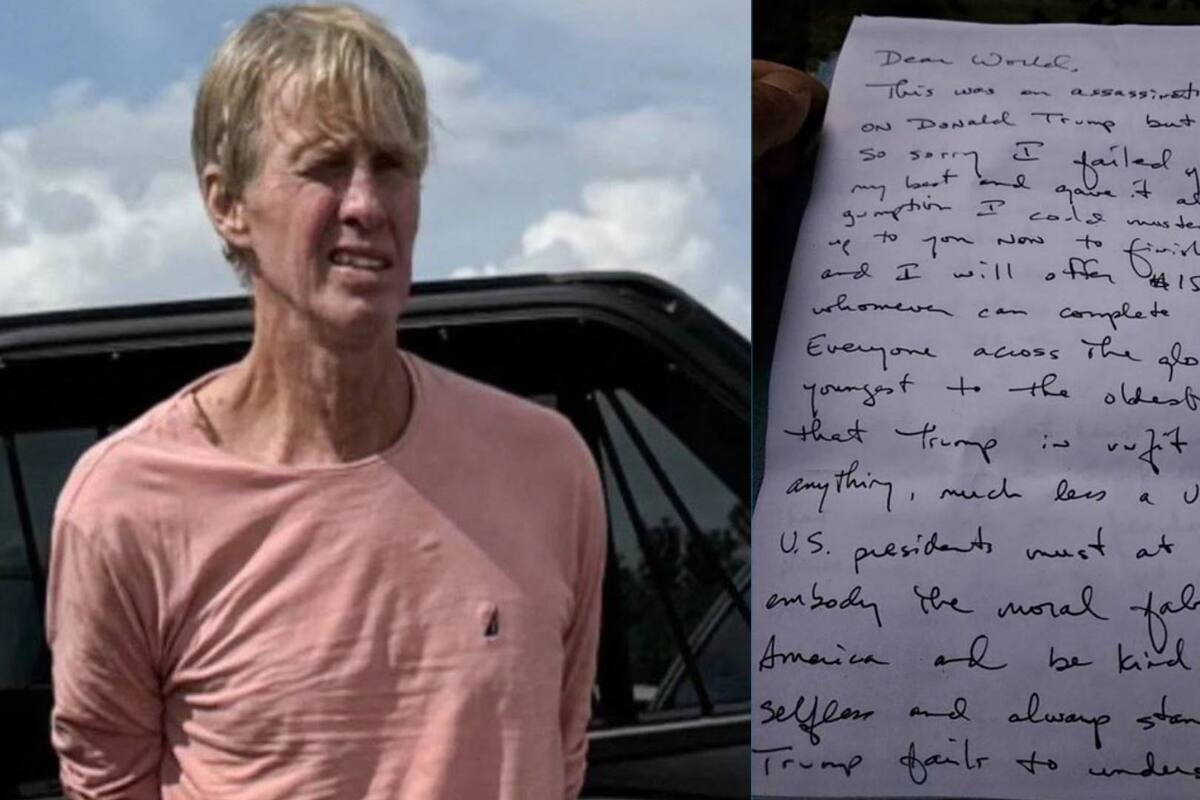 Dear World,
This was an assassinat
on Donald Trump but
so sorry I failed y
my best and gave it al
gumption I could muste
up to you now to finish
and I will offer $15
whomever can complete
Everyone across the glo
youngest to the oldest
that Trump is unfit
anything, much less a U
U.S. presidents must at
embody the moral fab
America and be kind
selfless and always stan
Trump fails to unders